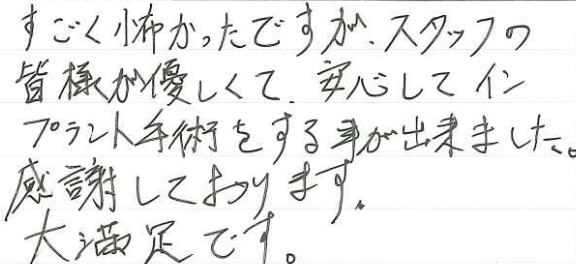 すごく怖かったですが、スタッフの
皆様が優しくて、安心してイン
プラント手術をする事が出来ました。
感謝しております。
大満足です。